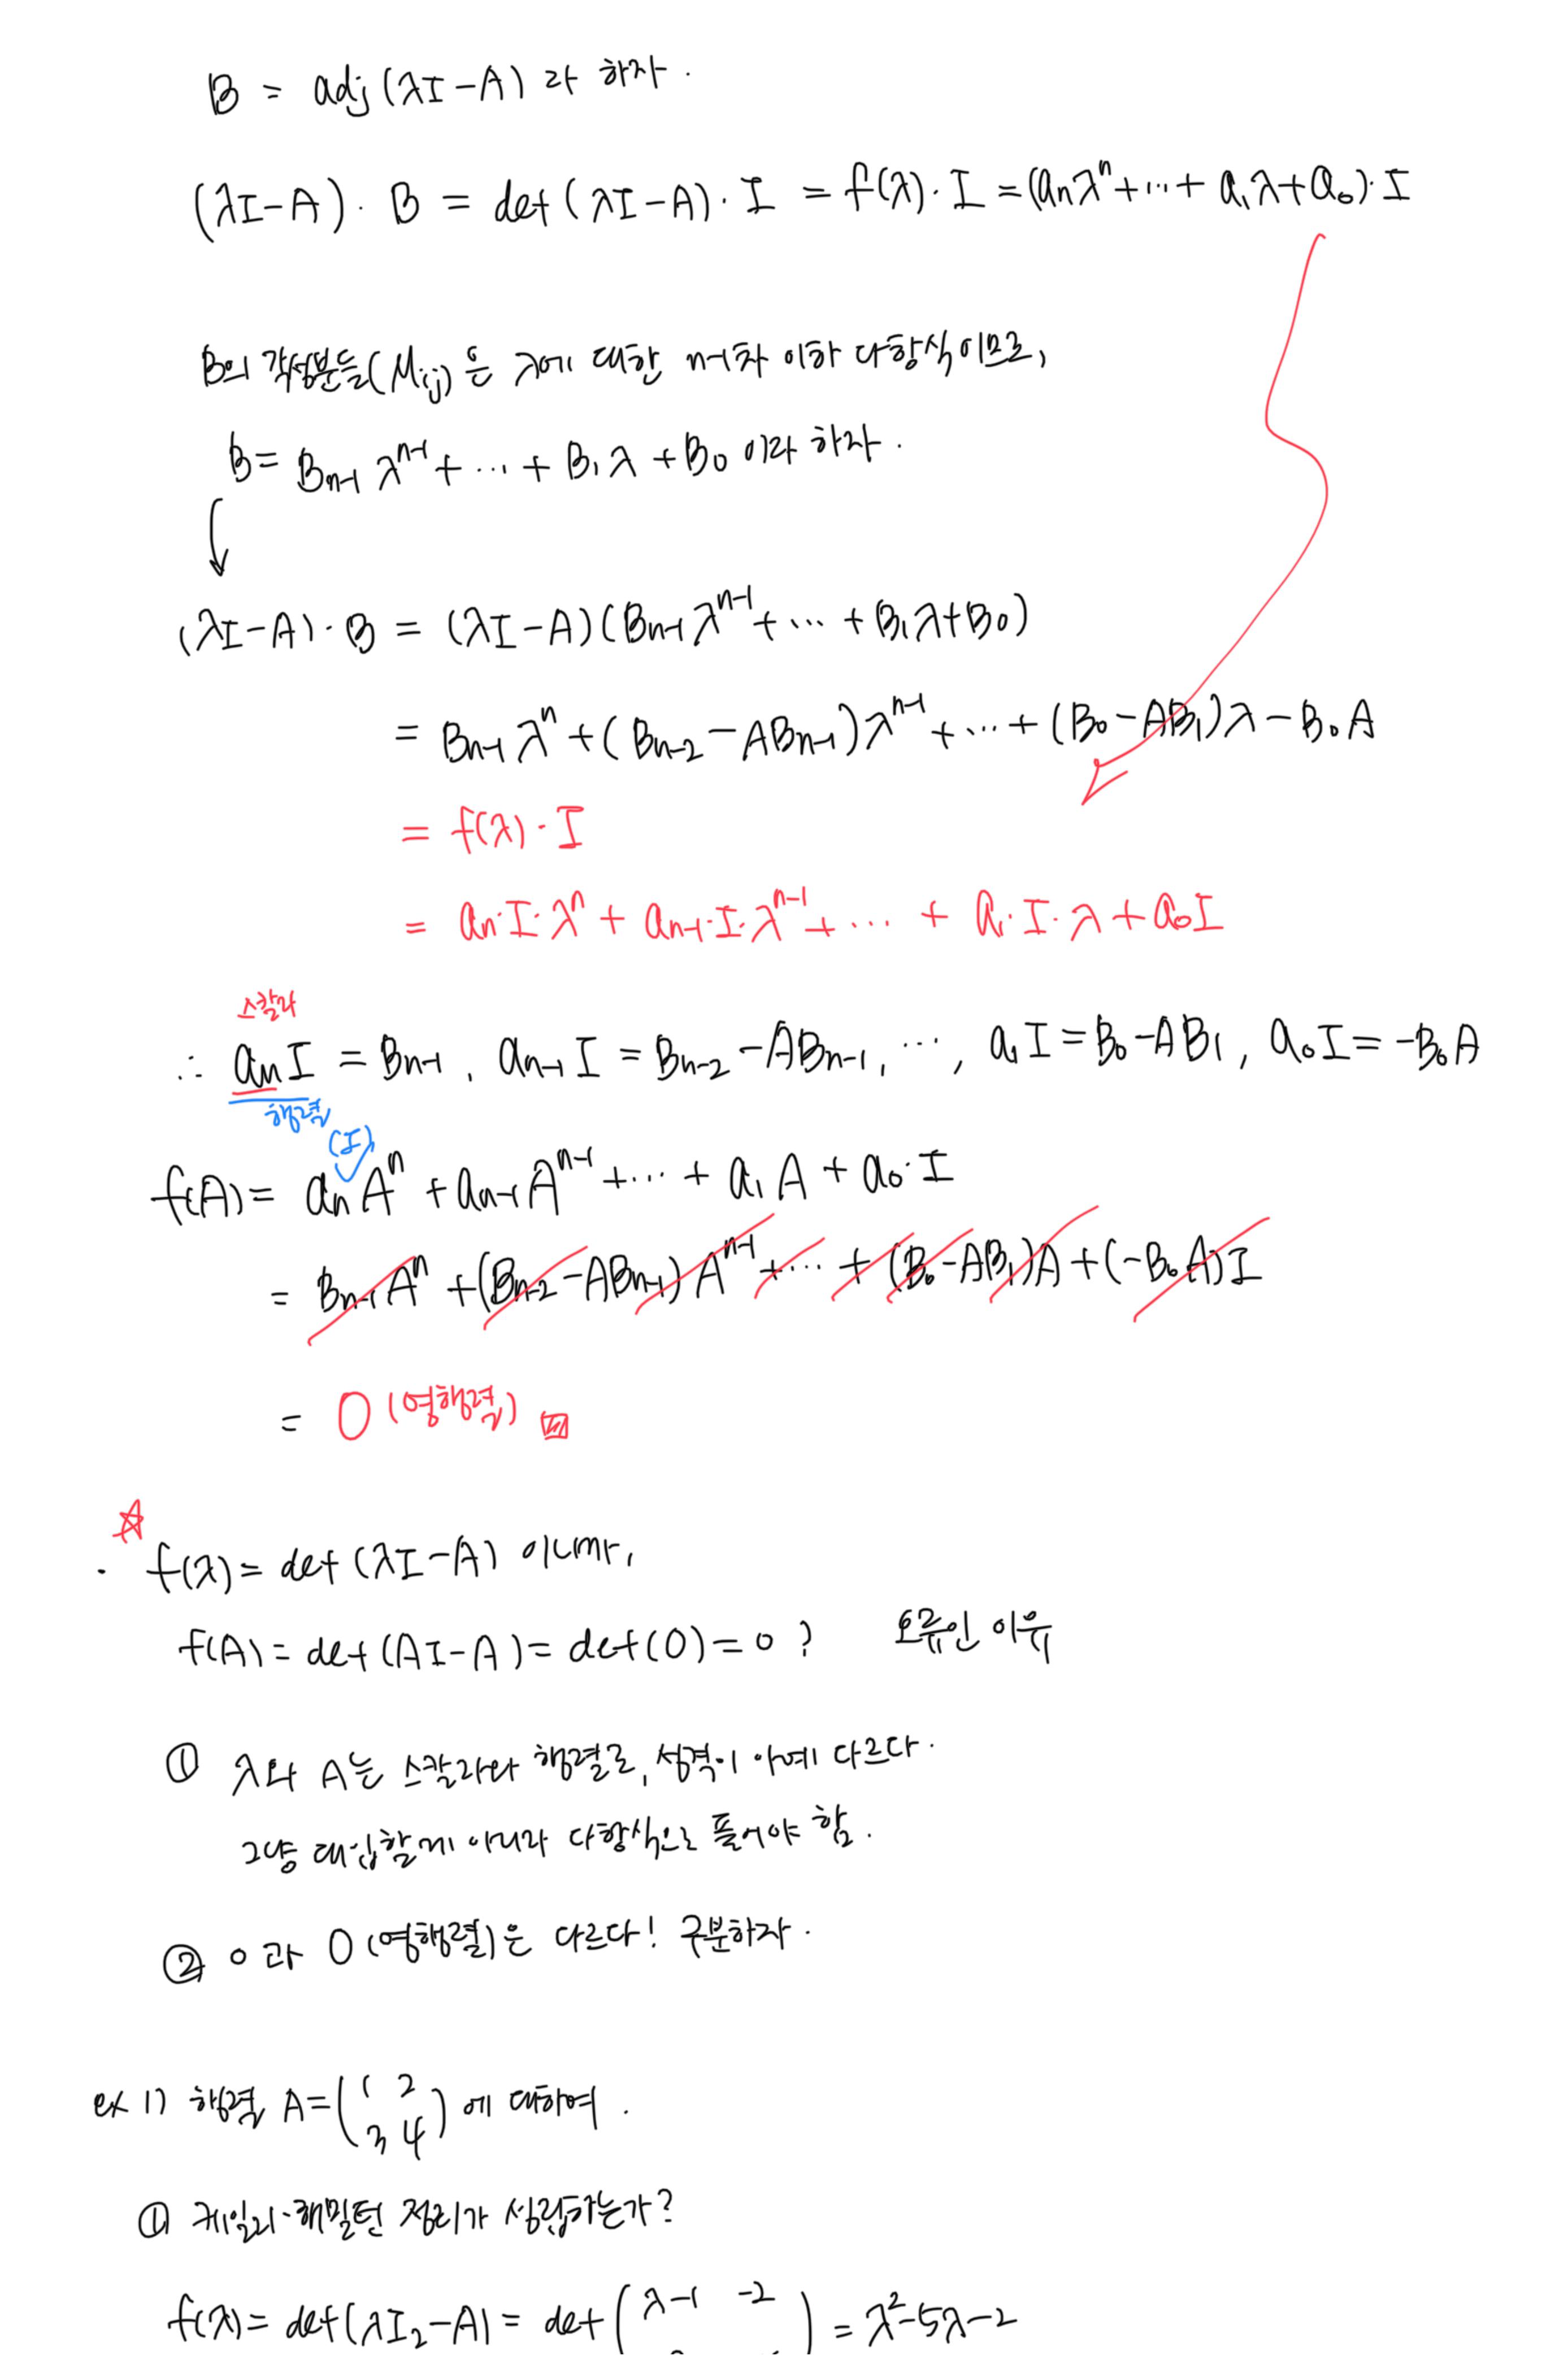 B = adj(λI-A) 라 하자.
(λI-A)·B = det(λI-A)·I = f(λ)·I = (aₙλⁿ+⋯+a₁λ+a₀)·I
B의 각성분들(Mᵢⱼ)은 λ에 대한 n-1차 이하 다항식이므로,
B = Bₙ₋₁λⁿ⁻¹+⋯+B₁λ+B₀ 이라 하자.
(λI-A)·B = (λI-A)(Bₙ₋₁λⁿ⁻¹+⋯+B₁λ+B₀)
= Bₙ₋₁λⁿ+(Bₙ₋₂-ABₙ₋₁)λⁿ⁻¹+⋯+(B₀-AB₁)λ-B₀A
= f(λ)·I
= aₙ·I·λⁿ+aₙ₋₁·I·λⁿ⁻¹+⋯+a₁·I·λ+a₀I
스칼라
∴ aₙI = Bₙ₋₁, aₙ₋₁I = Bₙ₋₂-ABₙ₋₁, ⋯, a₁I = B₀-AB₁, a₀I = -B₀A
행렬
(I)
f(A) = aₙAⁿ+aₙ₋₁Aⁿ⁻¹+⋯+a₁A+a₀·I
= Bₙ₋₁Aⁿ+(Bₙ₋₂-ABₙ₋₁)Aⁿ⁻¹+⋯+(B₀-AB₁)A+(-B₀A)I
= O (영행렬)
· f(λ) = det(λI-A) 이니까,
f(A) = det(AI-A) = det(O) = 0 ? 오류인 이유
① λ와 A는 스칼라와 행렬로, 성격이 아예 다르다.
그냥 대입할게 아니라 다항식으로 풀어야 함.
② 0과 O(영행렬)은 다르다! 구분하자.
ex 1) 행렬 A = (1 2
3 4) 에 대하여.
① 케일리·해밀턴 정리가 성립하는가?
f(λ) = det(λI₂-A) = det(λ-1 -2) = λ²-5λ-2